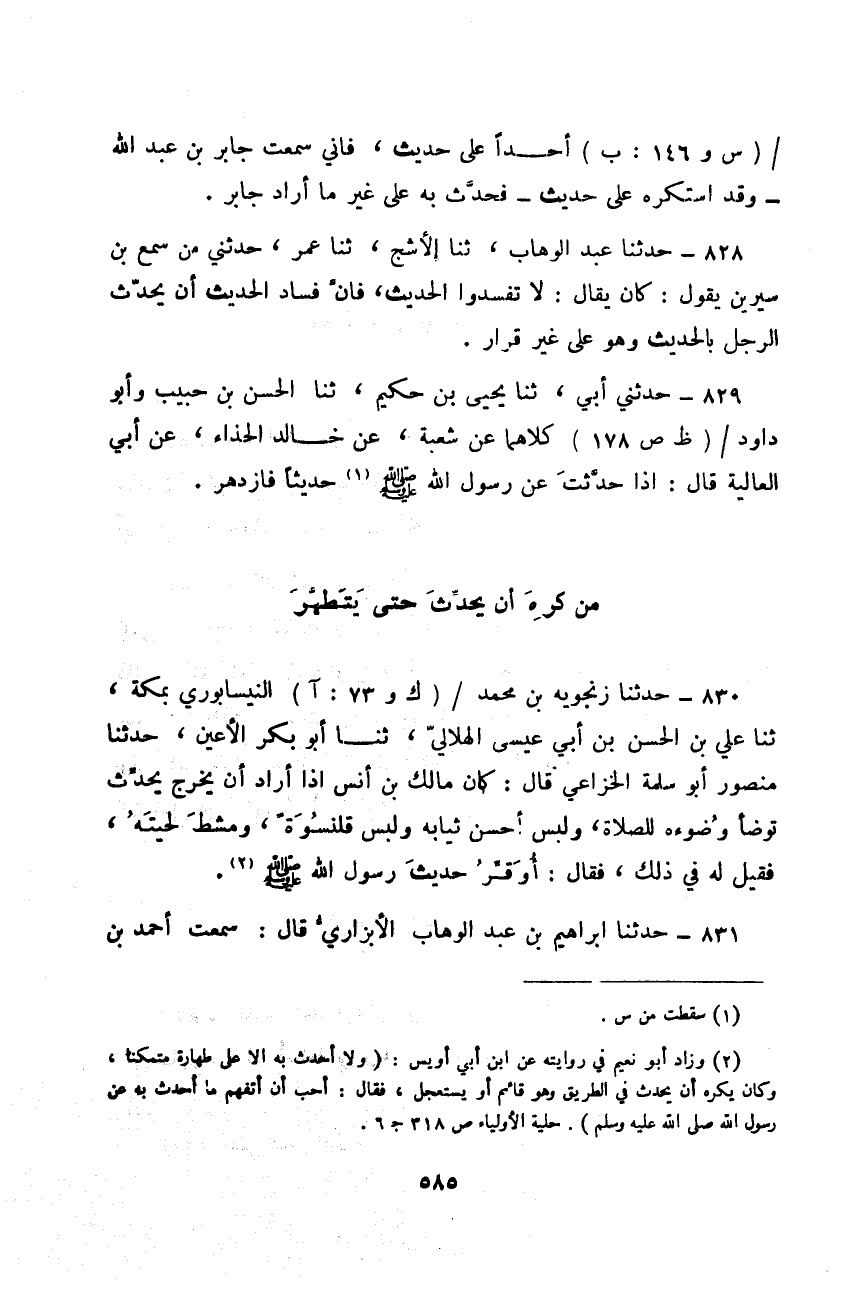 / ( س و ١٤٦ : ب ) أحـــداً على حديث ، فاني سمعت جابر بن عبد الله
ـ وقد استكره على حديث ـ فحدَّث به على غير ما أراد جابر .
٨٢٨ ـ حدثنا عبد الوهاب ، ثنا الأشج ، ثنا عمر ، حدثني من سمع بن
سيرين يقول : كان يقال : لا تفسدوا الحديث، فانَّ فساد الحديث أن يحدّث
الرجل بالحديث وهو على غير قرار .
٨٢٩ ـ حدثني أبي ، ثنا يحيى بن حكيم ، ثنا الحسن بن حبيب وأبو
داود / ( ظ ص ١٧٨ ) كلاهما عن شعبة ، عن خـــالد الحذاء ، عن أبي
العالية قال : اذا حدَّثتَ عن رسول الله ﷺ (١) حديثاً فازدهر .
من كرِهَ أن يحدِّثَ حتى يَتَطهَّرَ
٨٣٠ ـ حدثنا زنجويه بن محمد / ( ك و ٧٣ : آ ) النيسابوري بمكة ،
ثنا علي بن الحسن بن أبي عيسى الهلاليّ ، ثنـــا أبو بكر الأعين ، حدثنا
منصور أبو سلمة الخزاعي قال : كان مالك بن أنس اذا أراد أن يخرج يحدّث
توضأ وُضوءه للصلاة، ولبس أحسن ثيابه ولبس قلنسُوَةً ، ومشطَ لحيتَهُ ،
فقيل له في ذلك ، فقال : أُوَقّرُ حديثَ رسول الله ﷺ (٢) .
٨٣١ ـ حدثنا ابراهيم بن عبد الوهاب الأبزاريُّ قال : سمعت أحمد بن
(١) سقطت من س .
(٢) وزاد أبو نعيم في روايته عن ابن أبي أويس : ( ولا أحدث به الا على طهارة متمكنا ،
وكان يكره أن يحدث في الطريق وهو قائم أو يستعجل ، فقال : أحب أن أتفهم ما أحدث به عن
رسول الله صلى الله عليه وسلم ) . حلية الأولياء ص ٣١٨ ج ٦ .
٥٨٥